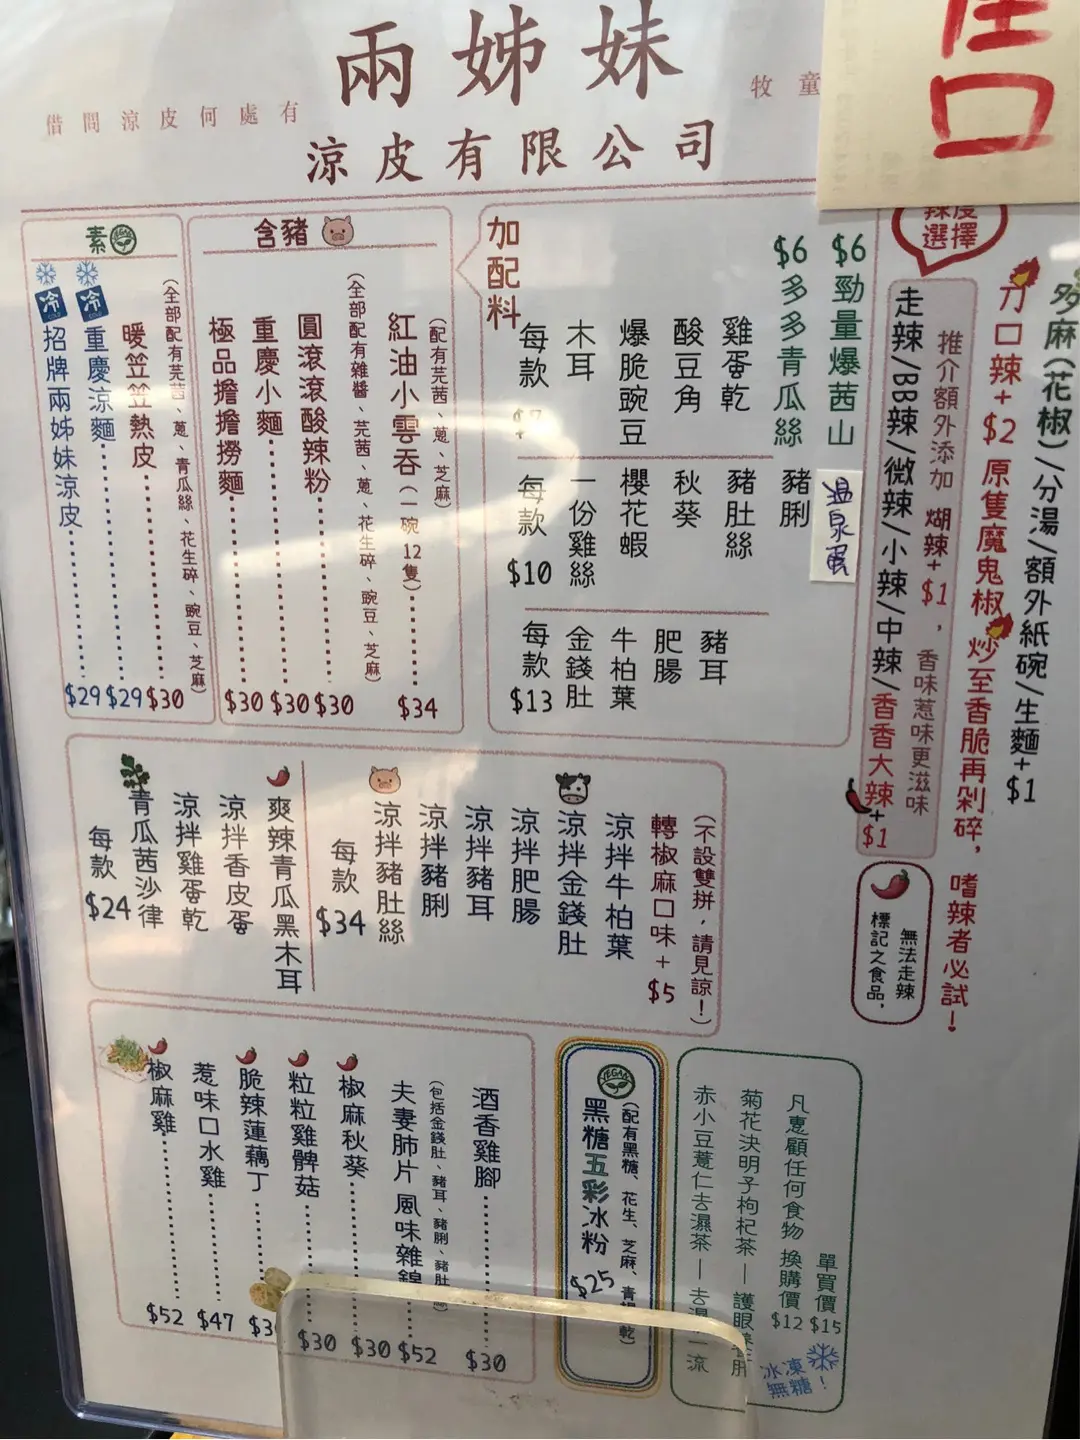 兩姊妹
借問涼皮何處有
牧童
涼皮有限公司
口
素
VEGAN
(全部配有芫茜、蔥、青瓜絲、花生碎、豌豆、芝麻)
暖笠笠熱皮 $30
冷 重慶涼麵 $29
冷 招牌兩姊妹涼皮 $29
含豬
(配有芫茜、蔥、芝麻)
紅油小雲吞(一碗12隻) $34
(全部配有雜醬、芫茜、蔥、花生碎、豌豆、芝麻)
圓滾滾酸辣粉 $30
重慶小麵 $30
極品擔擔撈麵 $30
加配料
$6 勁量爆茜山
$6 多多多青瓜絲
雞蛋乾
酸豆角
爆脆豌豆
木耳
每款
溫泉蛋
豬脷
豬肚絲
秋葵
櫻花蝦
一份雞絲
每款 $10
豬耳
肥腸
牛柏葉
金錢肚
每款 $13
選擇
多麻(花椒)/分湯/額外紙碗/生麵+$1
刀口辣+$2 原隻魔鬼椒炒至香脆再剁碎,嗜辣者必試!
推介額外添加 煳辣+$1,香味惹味更滋味
走辣/BB辣/微辣/小辣/中辣/香香大辣+$1
無法走辣
標記之食品,
爽辣青瓜黑木耳
涼拌香皮蛋
涼拌雞蛋乾
青瓜茜沙律
每款 $24
(不設雙拼,請見諒!)
轉椒麻口味+$5
涼拌牛柏葉
涼拌金錢肚
涼拌肥腸
涼拌豬耳
涼拌豬脷
涼拌豬肚絲
每款 $34
酒香雞腳 $30
(包括金錢肚、豬耳、豬脷、豬肚
夫妻肺片 風味雜錦 $52
椒麻秋葵 $30
粒粒雞髀菇 $30
脆辣蓮藕丁
惹味口水雞 $47
椒麻雞 $52
VEGAN
(配有黑糖、花生、芝麻、青 乾)
黑糖五彩冰粉 $25
單買價 $15
凡惠顧任何食物 換購價 $12
菊花決明子枸杞茶—護眼 肝
赤小豆薏仁去濕茶—去濕一流
冰凍無糖!